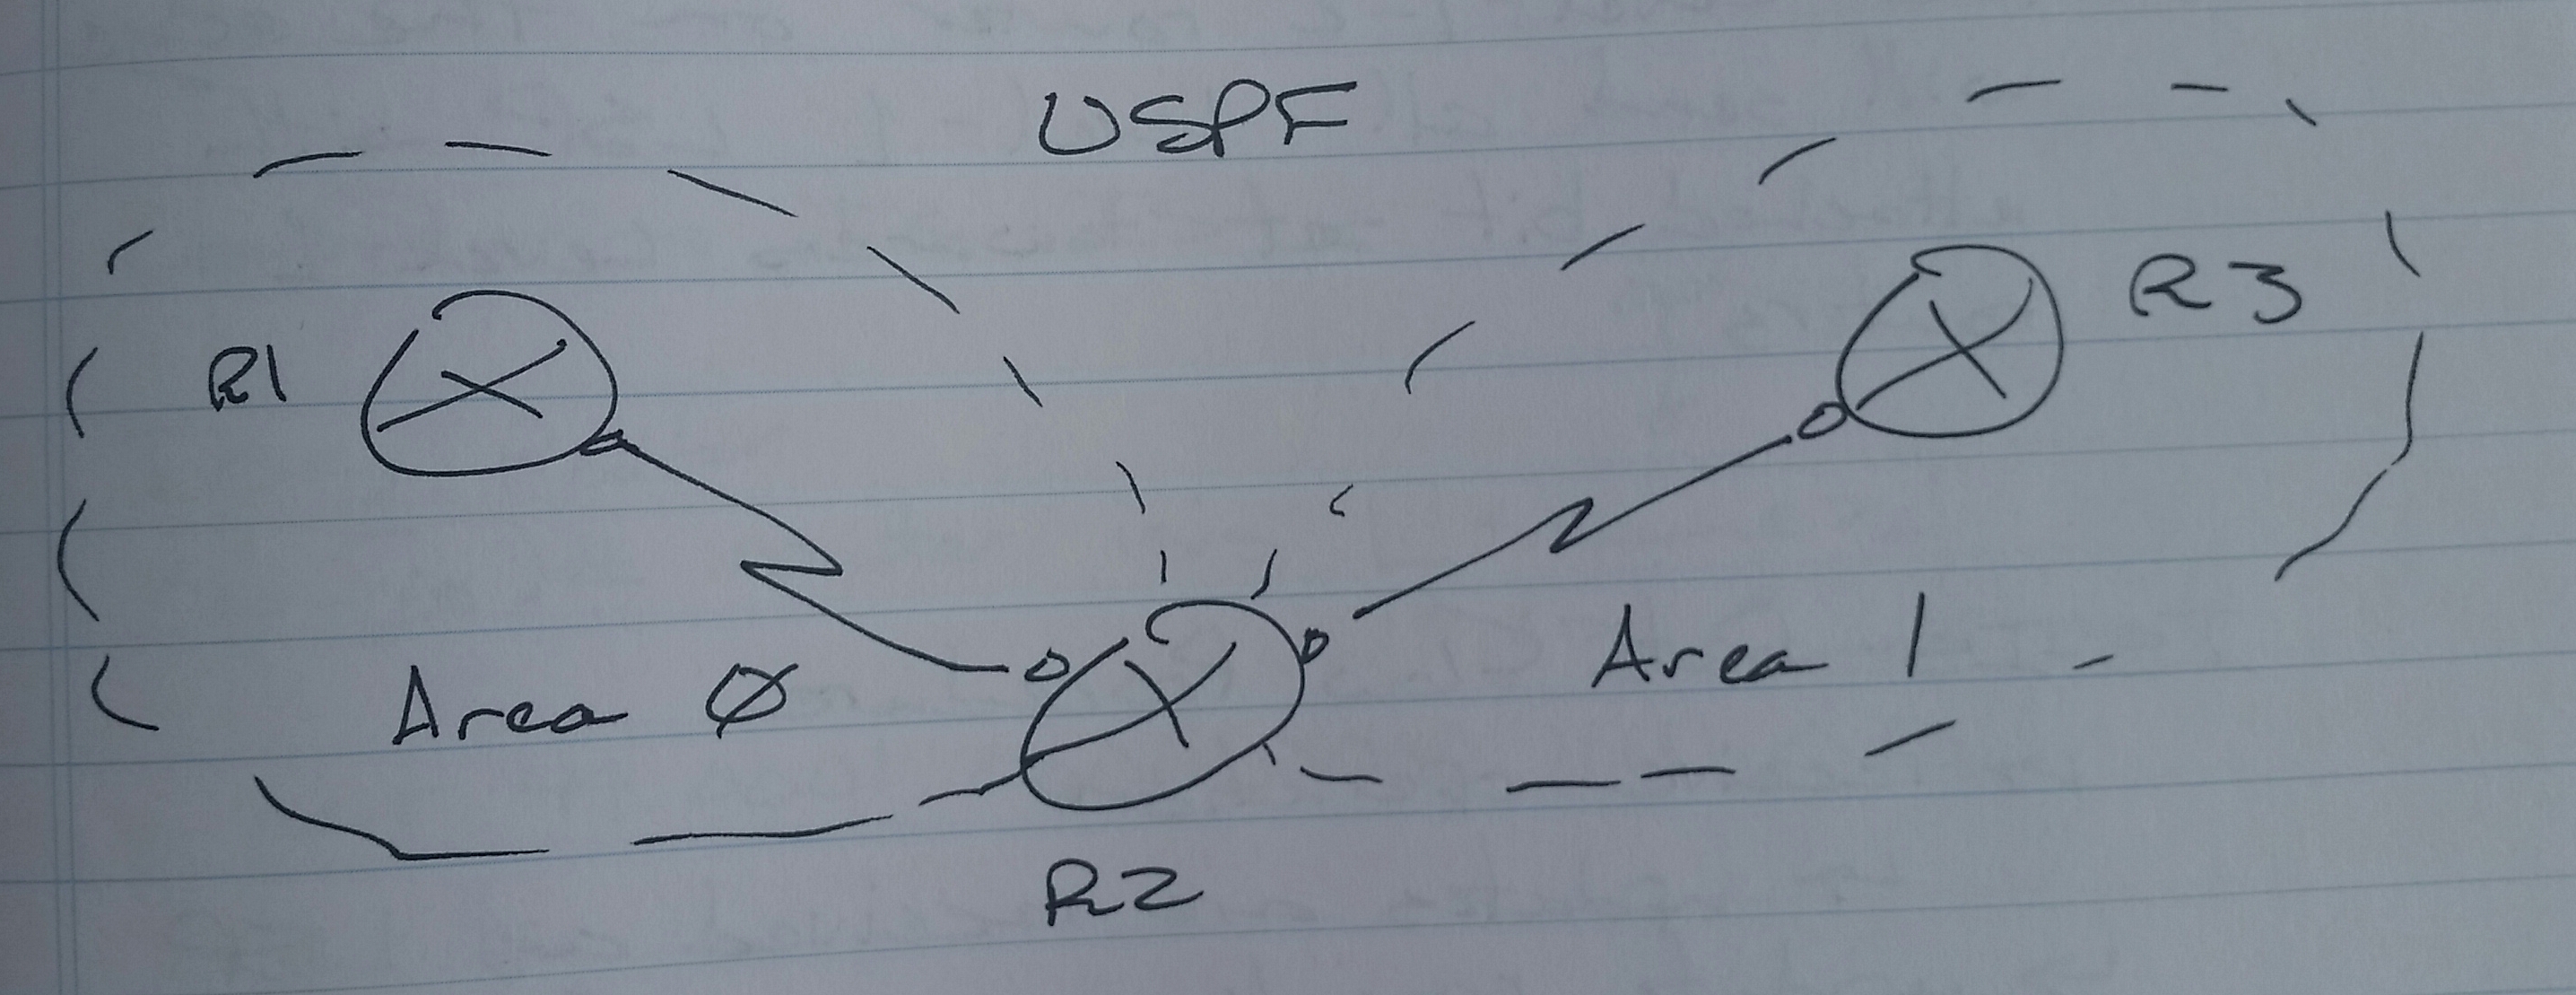 OSPF
R1
R3
Area 0
Area 1
R2